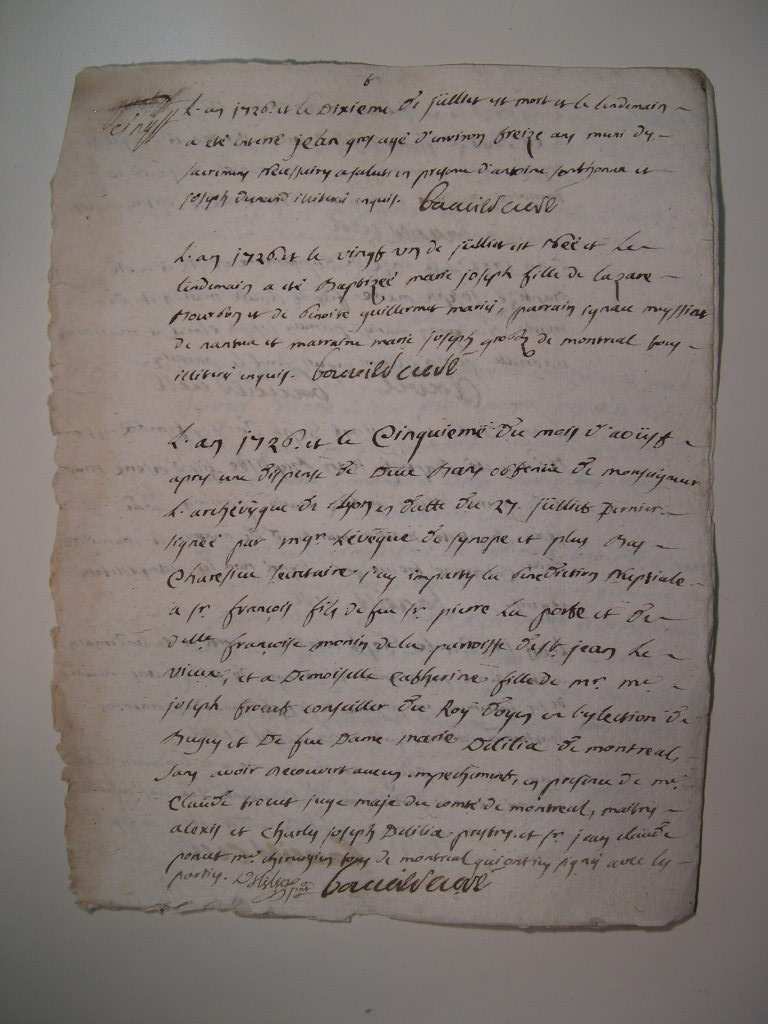 6
L'an 1726. et le Dixieme de juillet est mort et le lendemain
a eté interré jean gros agé d'environ treize ans muni des
sacremens necessaires a salut en presence d'antoine sonthonna et
joseph durand illiterés enquis. bouvield curé
L'an 1726. et le vingt un de juillet est néë et le
lendemain a eté Baptizeé marie joseph fille de lazare
Bourdon et de benoite guillermet mariés, parrain ignace
de nantua et marraine marie joseph de montreal tous
illiterés enquis. bouvield curé
L'an 1726. et le Cinquieme du mois d'aoüst
apres une dispense de Deux Bans obtenue de monseigneur
L'archévêque de Lyon en datte du 27. juillet Dernier
signeé par mgr. L'evêque de synope et plus Bas
secretaire j'ay imparty la benediction Nuptiale
a sr. françois fils de feu sr. pierre La porte et de
delle. françoise monin de la parroisse de st. jean le
vieux, et a Demoiselle Catherine fille de mr. me.
joseph conseiller du Roy en l'election de
Bugey et De feu Dame marie Delilia de montreal,
sans avoir decouvert aucun empechement, en presence de mr.
Claude juge maje du comté de montreal, maitres
alexis et Charles joseph Delilia prestres et sr. jean claude
poncet me. chirurgien tous de montreal qui ont signé avec les
parties. bouvield curé